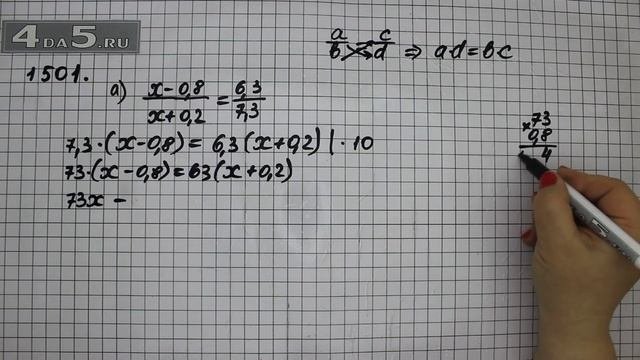 4DA5.RU
a/b = c/d ⇒ a·d = b·c
1501.
а) (x - 0,8)/(x + 0,2) = 6,3/7,3
7,3·(x - 0,8) = 6,3(x + 0,2) | · 10
73·(x - 0,8) = 63(x + 0,2)
73x -
× 73
0,8
4